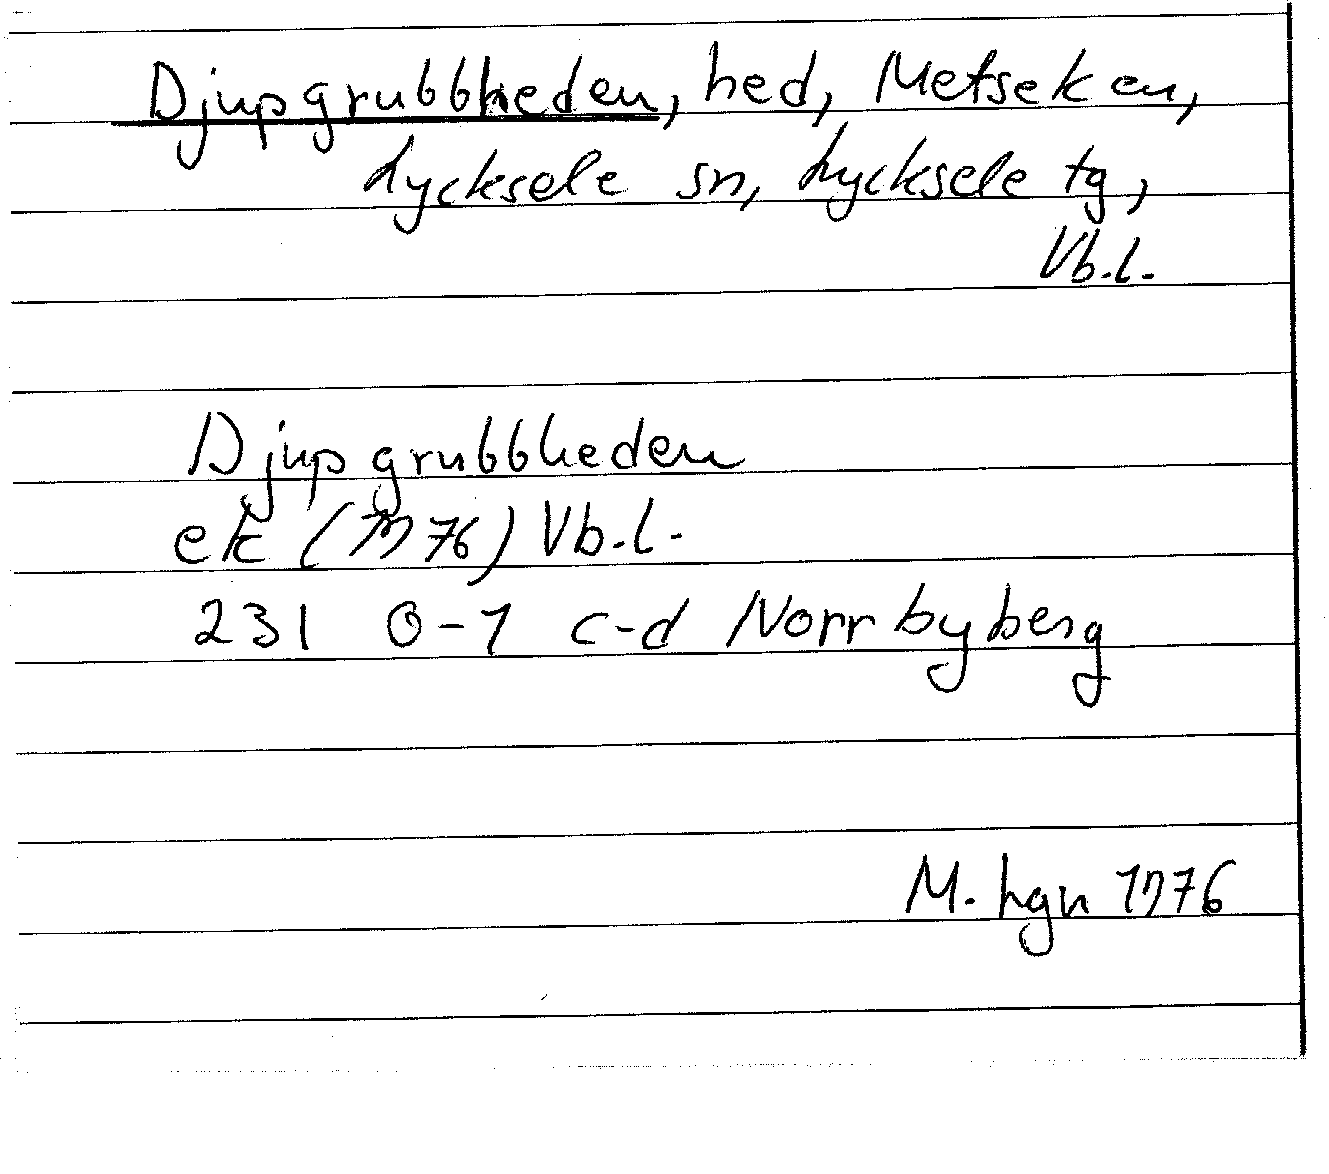 Djupgrubbheden, hed, Metseken,
Lycksele sn, Lycksele tg,
Vb.l.
Djupgrubbheden
ek (1976) Vb.l.
23I 0-1 c-d Norrbyberg
M. hgn 1976